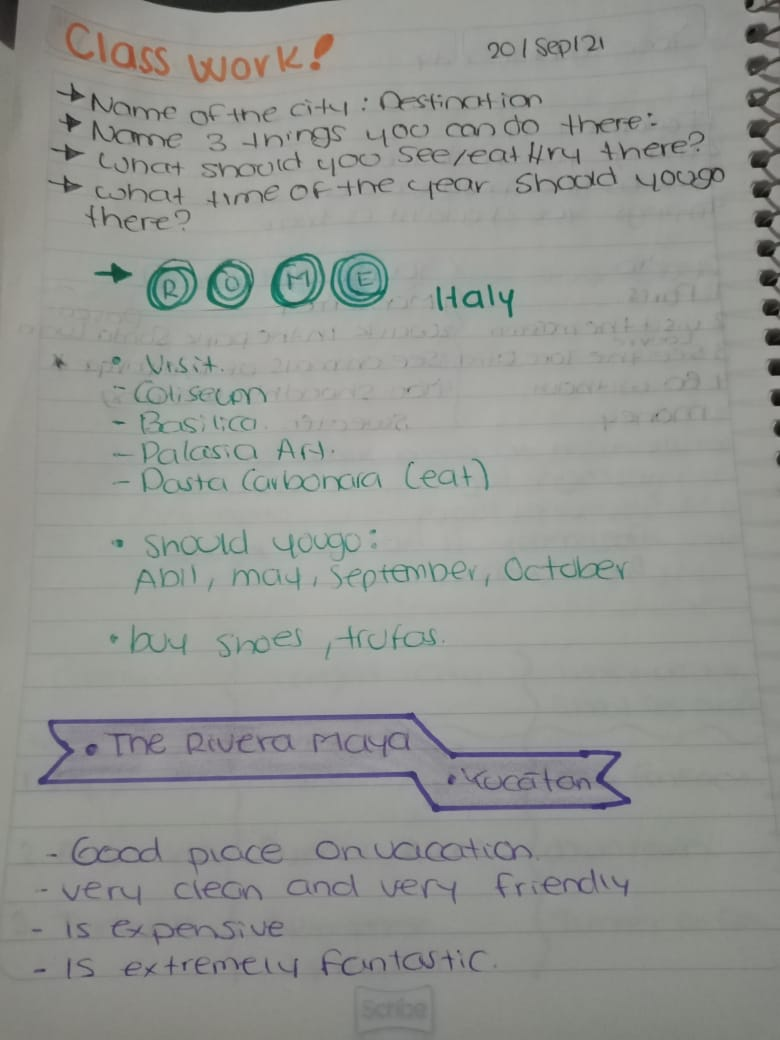 Class Work!
20/Sep/21
→ Name of the city: Destination
→ Name 3 things you can do there:
→ What should you see/eat/try there?
→ What time of the year should yougo
there?
→ R O M E Italy
• Visit.
- Coliseum
- Basilica.
- Palasia Art.
- Pasta Carbonara (eat)
• Should yougo:
Abil, may, September, October
• buy shoes, trufas.
• The Rivera Maya
• Yucatan
- Good place on vacation.
- very clean and very friendly
- is expensive
- IS extremely fantastic.
Scribe